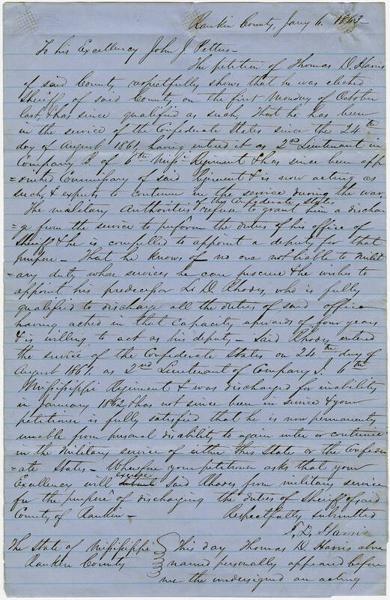 Rankin County, Jany 6. 1863
To his Excellency John J. Pettus
The petition of Thomas D. Harris
of said County, respectfully shows that he was elected
Sheriff of said County on the first Monday of October
last, & has since qualified as such, that he has been
in the service of the Confederate States since the 24th
day of August 1861, having entered it as 2nd Lieutenant in
Company I. of 6th Missi Regiment & has since been app
=ointed Commissary of said Regiment & is now acting as
such, & expects to continue in the service during the war.
of the Confederate States
The military Authorities refuse to grant him a dischar
=ge from the service to perform the duties of his office of
Sheriff & he is compelled to appoint a deputy for that
purpose - That he knows of no one not liable to milit
=ary duty whose services he can procure & he wishes to
appoint his predecessor L. D. Rhodes, who is fully
qualified to discharge all the duties of said office
having acted in that Capacity upwards of four years
& is willing to act as his deputy - Said Rhodes entered
the service of the Confederate States on 24th day of
August 1861 as 2nd Lieutenant of Company I. 6th
Mississippi Regiment & was discharged for inability
in January 1862 & has not since been in service & your
petitioner is fully satisfied that he is now permanently
unable from personal disability to again enter or continue
in the Military service of either this State or the Confeder
=ate States - Wherefore your petitioner asks that your
Excellency will said Rhodes from military service
for the purpose of discharging the duties of Sheriff of said
County of Rankin - Respectfully submitted
T. D. Harris
The State of Mississippi
Rankin County
This day Thomas D. Harris above
named personally appeared before
me the undersigned an acting